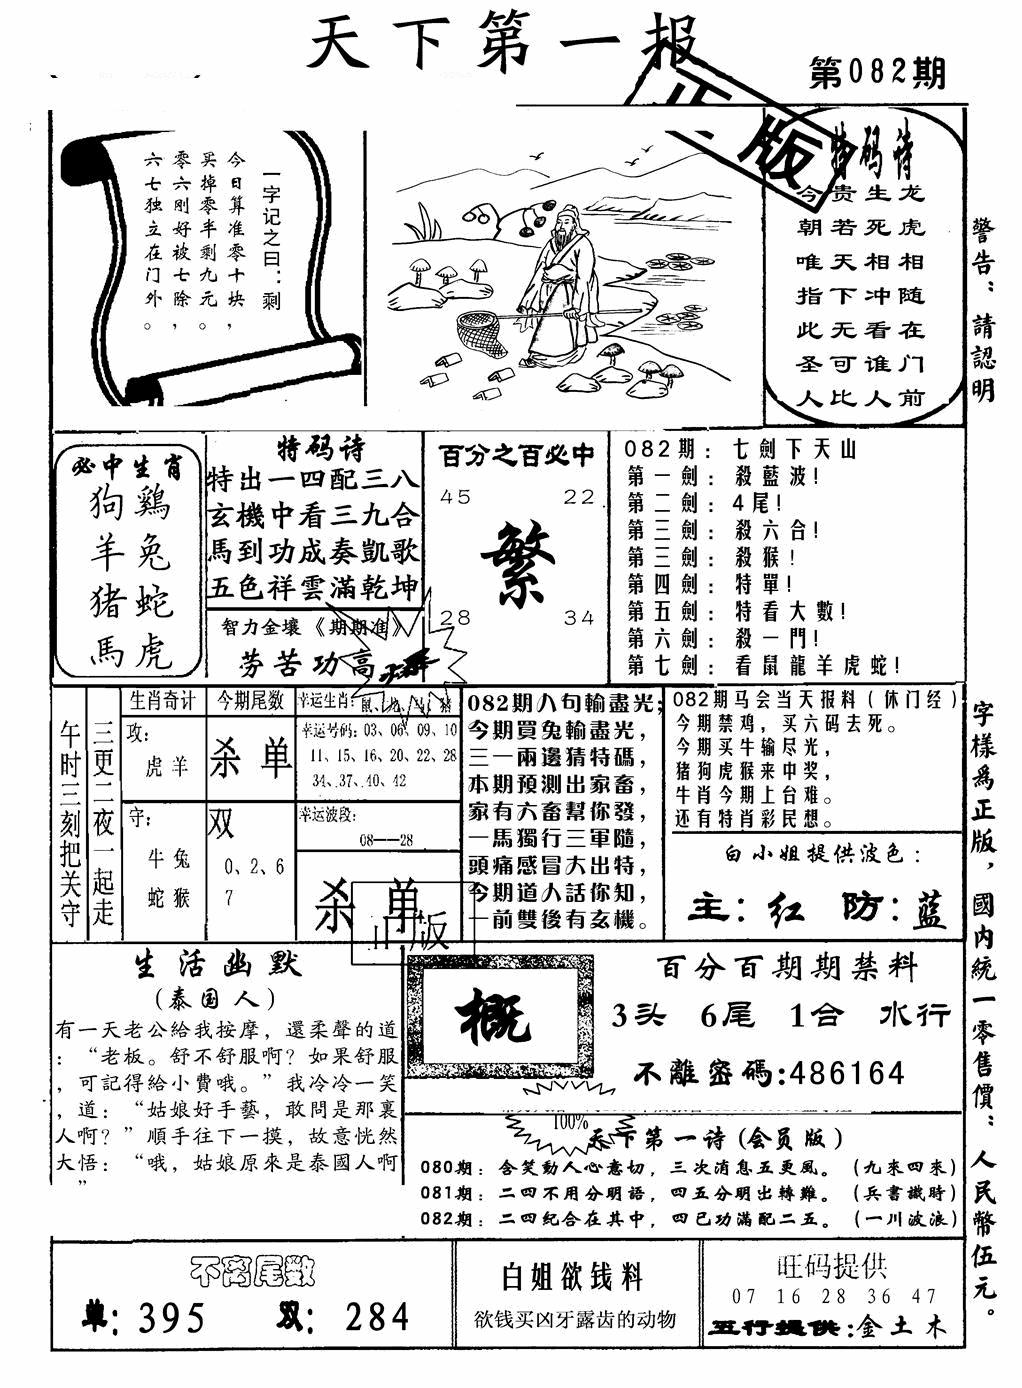 天下第一报
第082期
正版
一字记之曰：剩
今日算准零十块，
买掉零半剩九元。
零六刚好被七除，
六七独立在门外。
特码诗
龙虎相随在门前
生死相冲看谁人
贵若天下无可比
今朝唯指此圣人
警告：請認明
字樣為正版，國内統一零售價：人民幣伍元。
必中生肖
狗鷄
羊兔
猪蛇
馬虎
特码诗
特出一四配三八
玄機中看三九合
馬到功成奏凱歌
五色祥雲滿乾坤
智力金壤《期期准》
劳苦功高
百分之百必中
45 22
繁
28 34
082期：七劍下天山
第一劍：殺藍波！
第二劍：4尾！
第三劍：殺六合！
第三劍：殺猴！
第四劍：特單！
第五劍：特看大數！
第六劍：殺一門！
第七劍：看鼠龍羊虎蛇！
三更二夜一起走
午时三刻把关守
生肖奇计
攻：
虎羊
守：
牛兔
蛇猴
今期尾数
杀单
双
0、2、6
7
幸运生肖：鼠、龙、马、猪
幸运号码：03、06、09、10
11、15、16、20、22、28
34、37、40、42
幸运波段：
08——28
杀单
正版
082期八句輸盡光；
今期買兔輸盡光，
三一兩邊猜特碼，
本期預測出家畜，
家有六畜幫你發，
一馬獨行三軍隨，
頭痛感冒大出特，
今期道人話你知，
一前雙後有玄機。
082期马会当天报料（休门经）
今期禁鸡，买六码去死。
今期买牛输尽光，
猪狗虎猴来中奖，
牛肖今期上台难。
还有特肖彩民想。
白小姐提供波色：
主：红 防：蓝
生活幽默
（泰国人）
有一天老公給我按摩，還柔聲的道
：“老板。舒不舒服啊？如果舒服
，可記得給小費哦。”我冷冷一笑
，道：“姑娘好手藝，敢問是那裏
人啊？”順手往下一摸，故意恍然
大悟：“哦，姑娘原來是泰國人啊
”
概
百分百期期禁料
3头 6尾 1合 水行
不離密碼:486164
100%
天下第一诗(会员版)
080期：含笑動人心意切，三次消息五更風。（九來四來）
081期：二四不用分明語，四五分明出轉難。（兵書識時）
082期：二四紀合在其中，四已功滿配二五。（一川波浪）
不离尾数
单：395 双：284
白姐欲钱料
欲钱买凶牙露齿的动物
旺码提供
07 16 28 36 47
五行提供:金土木